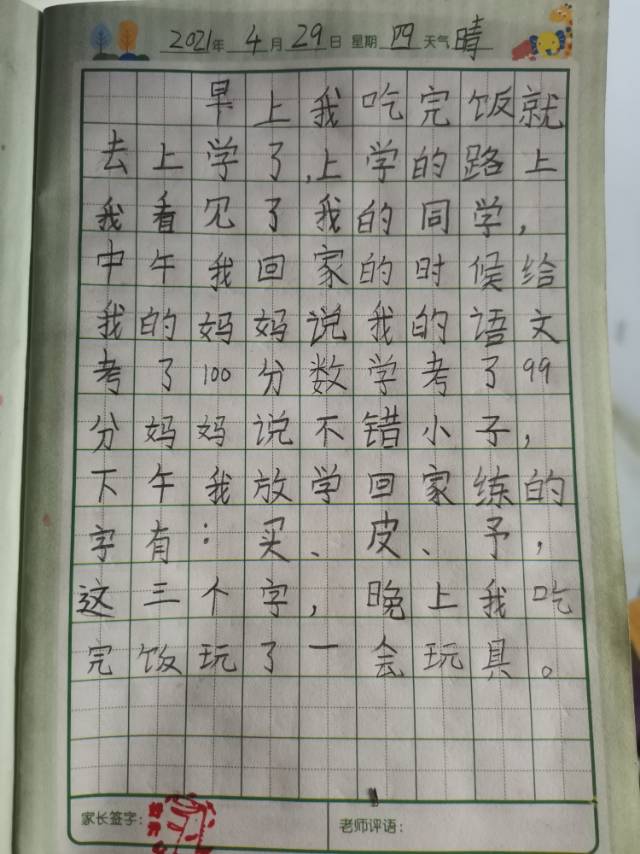 2021年 4月 29日 星期 四 天气 晴
早上我吃完饭就
去上学了,上学的路上
我看见了我的同学,
中午我回家的时候给
我的妈妈说我的语文
考了100分数学考了99
分妈妈说不错小子,
下午我放学回家练的
字有:买、皮、予,
这三个字,晚上我吃
完饭玩了一会玩具。
家长签字:
老师评语: